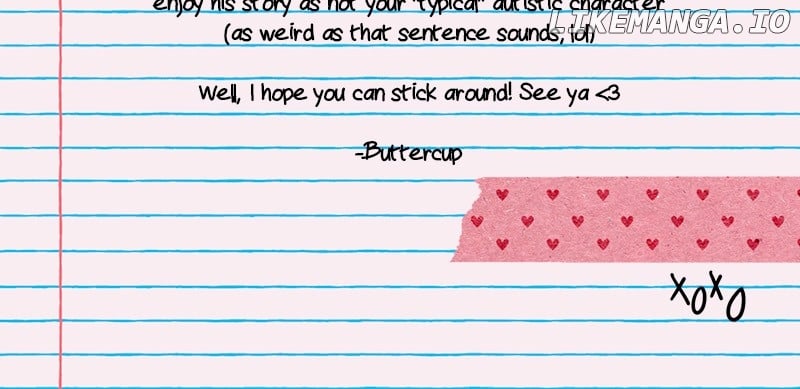 enjoy his story as not your "typical" autistic character
LIKEMANGA.IO
(as weird as that sentence sounds, lol)
Well, I hope you can stick around! See ya <3
-Buttercup
xoxo